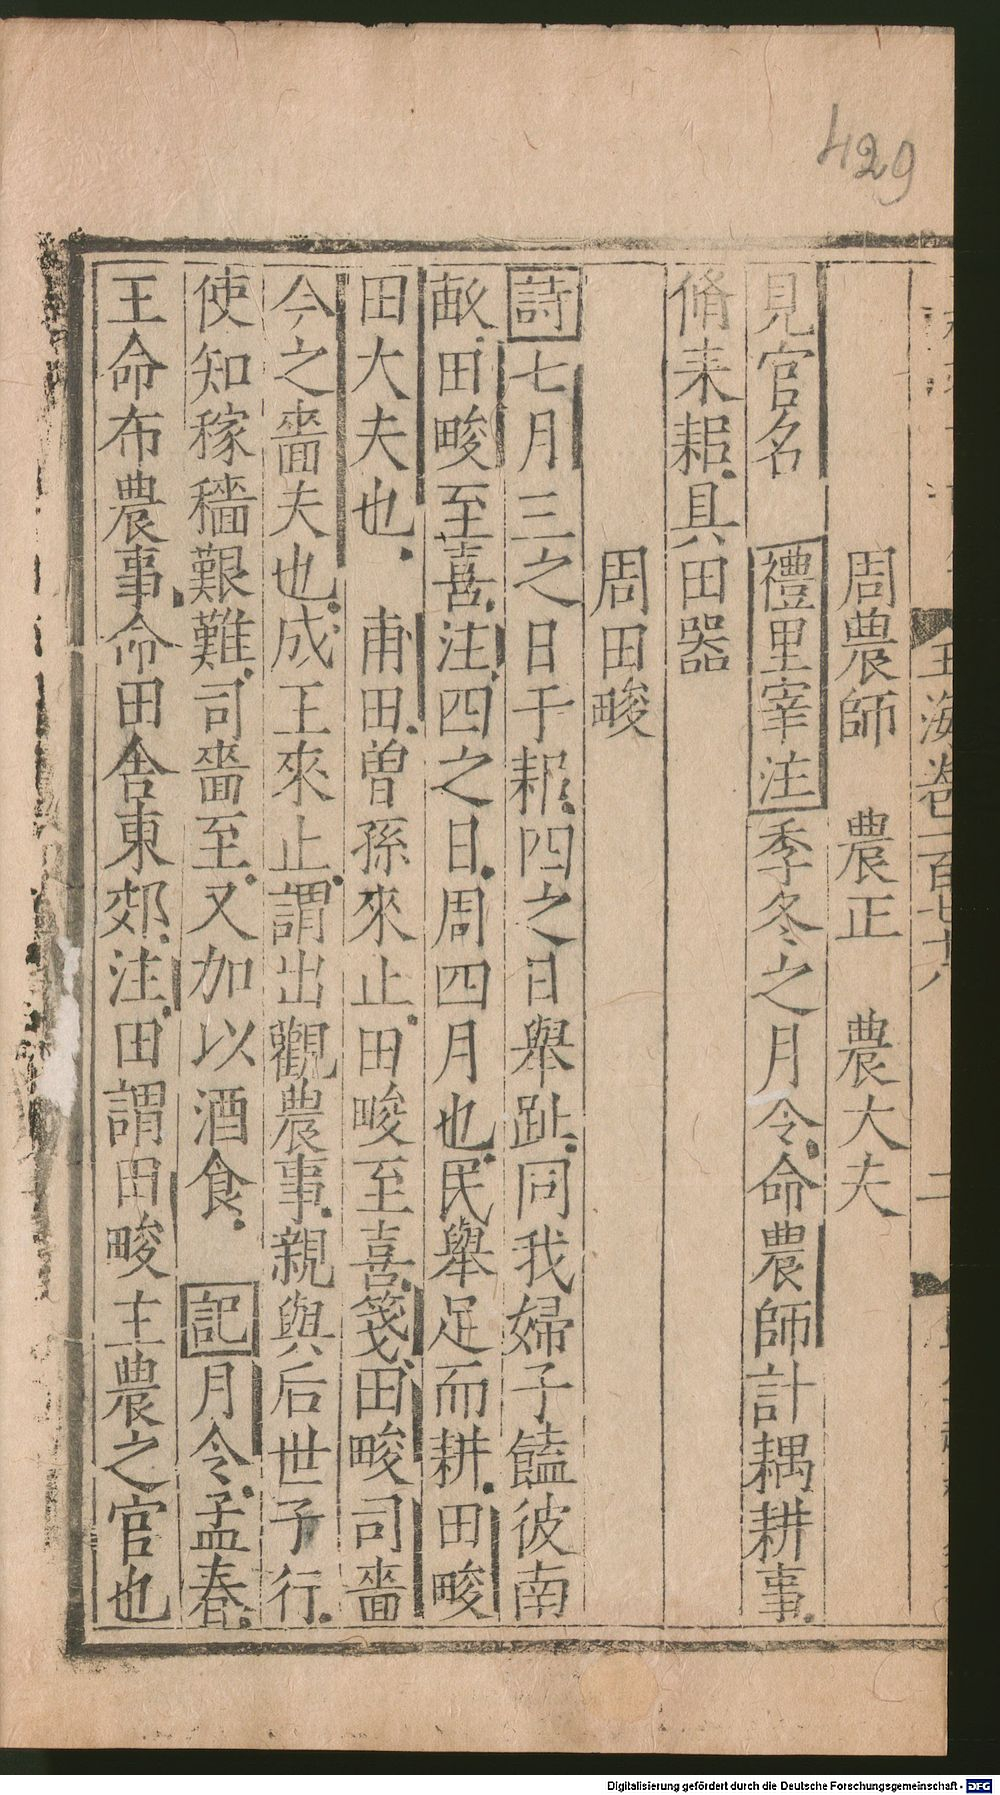 429
玉海卷一百七十八
二
周農師 農正 農大夫
見官名 禮里宰注季冬之月令命農師計耦耕事
脩耒耜具田器
周田畯
詩七月三之日于耜四之日舉趾同我婦子饁彼南
畝田畯至喜注四之日周四月也民舉足而耕田畯
田大夫也 甫田曽孫來止田畯至喜箋田畯司嗇
今之嗇夫也成王來止謂出觀農事親與后世子行
使知稼穡艱難司嗇至又加以酒食 記月令孟春
王命布農事命田舍東郊注田謂田畯主農之官也
Digitalisierung gefördert durch die Deutsche Forschungsgemeinschaft - DFG